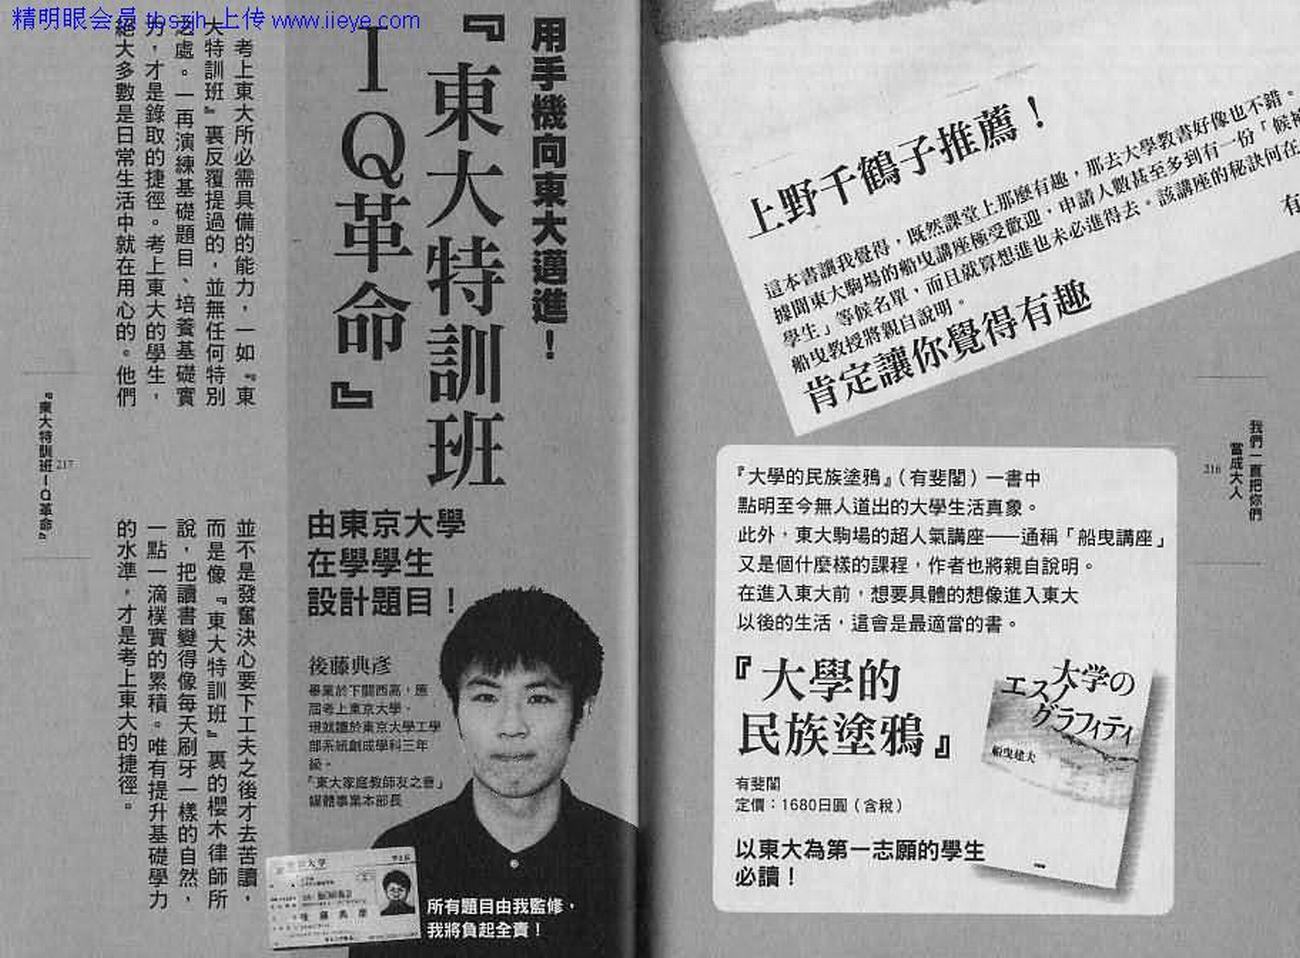 精明眼会员 tbszjh 上传 www.iieye.com
上野千鶴子推薦！
這本書讓我覺得，既然課堂上那麼有趣，那去大學教書好像也不錯。
據聞東大駒場的船曳講座極受歡迎，申請人數甚至多到有一份「候補
學生」等候名單，而且就算想進也未必進得去。該講座的秘訣何在
船曳教授將親自說明。
有
肯定讓你覺得有趣
我們一直把你們
當成大人
216
『大學的民族塗鴉』（有斐閣）一書中
點明至今無人道出的大學生活真象。
此外，東大駒場的超人氣講座——通稱「船曳講座」
又是個什麼樣的課程，作者也將親自說明。
在進入東大前，想要具體的想像進入東大
以後的生活，這會是最適當的書。
『大學的
民族塗鴉』
有斐閣
定價：1680日圓（含稅）
以東大為第一志願的學生
必讀！
大学の
エスノ
グラフィティ
船曳建夫
用手機向東大邁進！
『東大特訓班
IQ革命』
由東京大學
在學學生
設計題目！
後藤典彥
畢業於下關西高，應
屆考上東京大學。
現就讀於東京大學工學
部系統創成學科三年
級。
「東大家庭教師友之會」
媒體事業本部長
所有題目由我監修，
我將負起全責！
考上東大所必需具備的能力，一如『東
大特訓班』裏反覆提過的，並無任何特別
之處。一再演練基礎題目、培養基礎實
力，才是錄取的捷徑。考上東大的學生，
絕大多數是日常生活中就在用心的。他們
並不是發奮決心要下工夫之後才去苦讀，
而是像『東大特訓班』裏的櫻木律師所
說，把讀書變得像每天刷牙一樣的自然，
一點一滴樸實的累積。唯有提升基礎學力
的水準，才是考上東大的捷徑。
『東大特訓班IQ革命』
217